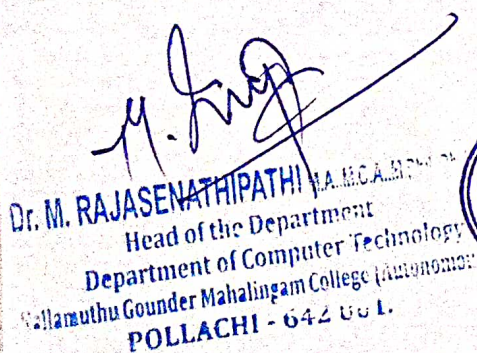 Dr. M. RAJASENATHIPATHI M.A.,M.C.A.,
Head of the Department
Department of Computer Technology
Gounder Mahalingam College (Autonomous
POLLACHI - 642